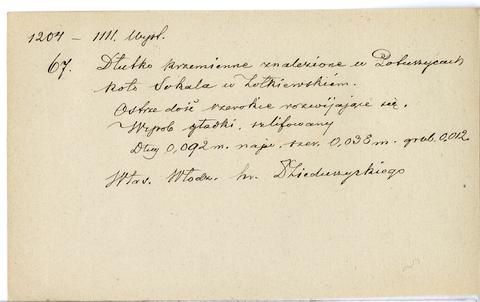 1204 – IIII. Wyst.
67. Dłutko krzemienne znalezione w Poturzycach
koło Sokala w Żółkiewskiem.
Ostrze dość szerokie rozwijające się.
Wyrób gładki, szlifowany
Dług. 0,092 m. najw. szer. 0,038 m. grub. 0,012.
Właś. Włodz. hr. Dzieduszyckiego